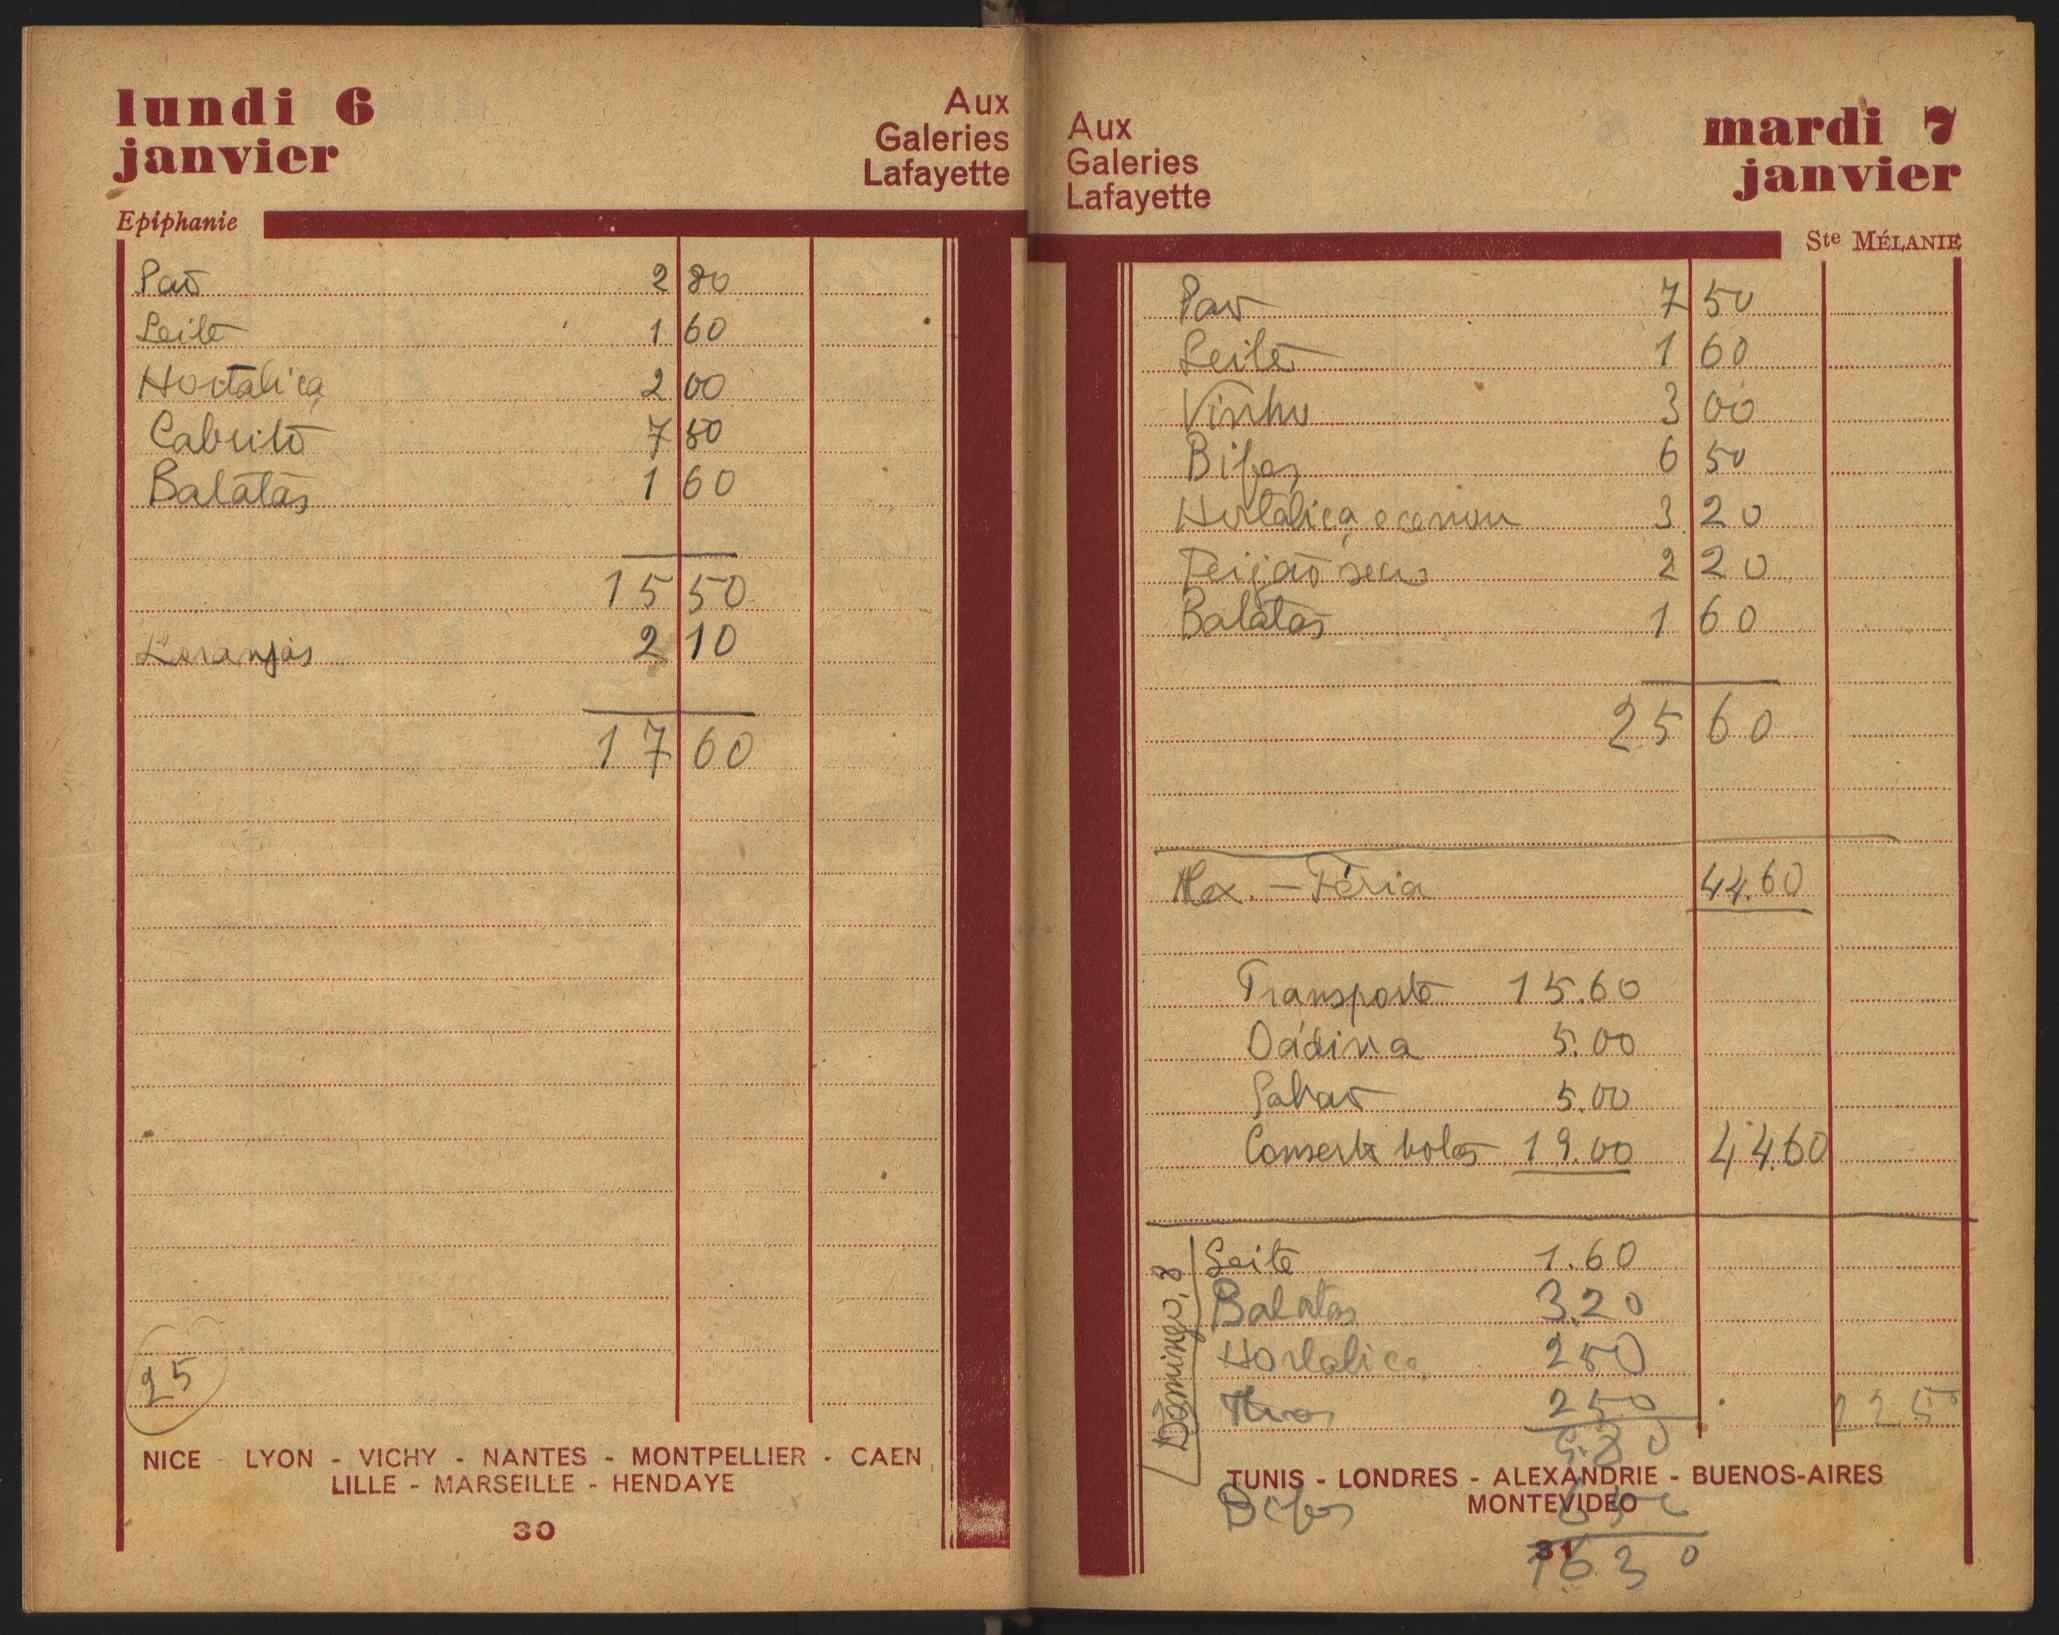 lundi 6
janvier
Aux
Galeries
Lafayette
Epiphanie
Pão 2 80
Leite 1 60
Hortaliça 2 00
Cabrito 7 50
Batatas 1 60
15 50
Laranjas 2 10
17 60
25
NICE - LYON - VICHY - NANTES - MONTPELLIER - CAEN
LILLE - MARSEILLE - HENDAYE
30
Aux
Galeries
Lafayette
mardi 7
janvier
Ste MÉLANIE
Pão 7 50
Leite 1 60
Vinho 3 00
Bifes 6 50
Hortaliça e cenou 3 20
Feijão seco 2 20
Batatas 1 60
25 60
Alex. - Féria 44.60
Transporte 15.60
Dádiva 5.00
Sabão 5.00
Conserto botas 19.00 44.60
Domingo, 8
Leite 1.60
Batatas 3.20
Hortaliça 250
250
9.80
TUNIS - LONDRES - ALEXANDRIE - BUENOS-AIRES
MONTEVIDEO
Bifes 650
31
1630